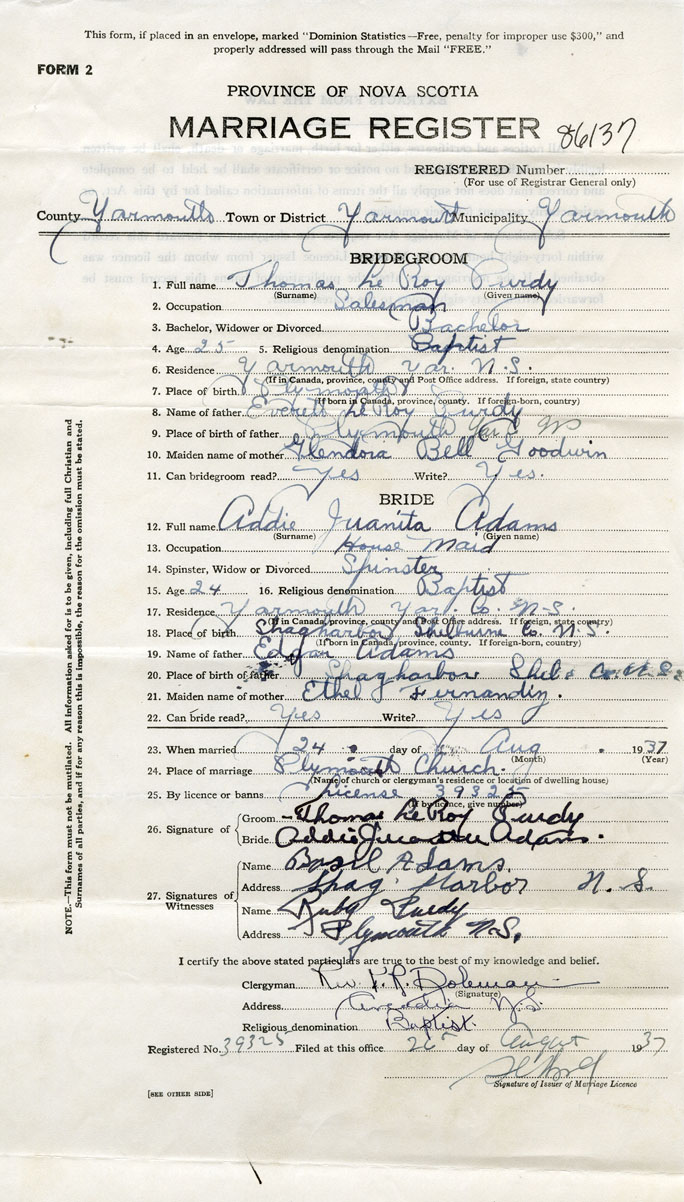 This form, if placed in an envelope, marked "Dominion Statistics—Free, penalty for improper use $300," and
properly addressed will pass through the Mail "FREE."
FORM 2
PROVINCE OF NOVA SCOTIA
MARRIAGE REGISTER 86137
REGISTERED Number
(For use of Registrar General only)
County Yarmouth Town or District Yarmouth Municipality Yarmouth
BRIDEGROOM
1. Full name Thomas Le Roy Purdy
(Surname) (Given name)
2. Occupation Salesman
3. Bachelor, Widower or Divorced Bachelor
4. Age 25 5. Religious denomination Baptist
6. Residence Yarmouth Yar. N.S.
(If in Canada, province, county and Post Office address. If foreign, state country)
7. Place of birth Plymouth
(If born in Canada, province, county. If foreign-born, country)
8. Name of father Everett Le Roy Purdy
9. Place of father Plymouth NS
10. Maiden name of mother Glendora Bell Goodwin
11. Can bridegroom read? Yes Write? Yes.
BRIDE
12. Full name Addie Juanita Adams
(Surname) (Given name)
13. Occupation House Maid
14. Spinster, Widow or Divorced Spinster
15. Age 24 16. Religious denomination Baptist
17. Residence Yarmouth Yar. Co. N.S.
(If in Canada, province, county and Post Office address. If foreign, state country)
18. Place of birth Shag harbor Shelburne Co. N.S.
(If born in Canada, province, county. If foreign-born, country)
19. Name of father Edgar Adams
20. Place of birth of father Shagharbor Shel. Co. N.S.
21. Maiden name of mother Ethel Fernandiz.
22. Can bride read? Yes Write? Yes
23. When married 24 day of Aug 1937
(Month) (Year)
24. Place of marriage Plymouth Church.
(Name of church or clergyman's residence or location of dwelling house)
25. By licence or banns License 39325
(If by licence, give number)
26. Signature of
Groom Thomas Le Roy Purdy
Bride Addie Juanita Adams.
27. Signatures of Witnesses
Name Basil Adams.
Address Shag Harbor N.S.
Name Ruby Purdy
Address Plymouth N.S,
I certify the above stated particulars are true to the best of my knowledge and belief.
Clergyman Rev.
(Signature)
Address Arcadia N.S.
Religious denomination Baptist.
Registered No. 39325 Filed at this office 26 day of August 1937
Signature of Issuer of Marriage Licence
[SEE OTHER SIDE]
NOTE.—This form must not be mutilated. All information asked for is to be given, including full Christian and
Surnames of all parties, and if for any reason this is impossible, the reason for the omission must be stated.